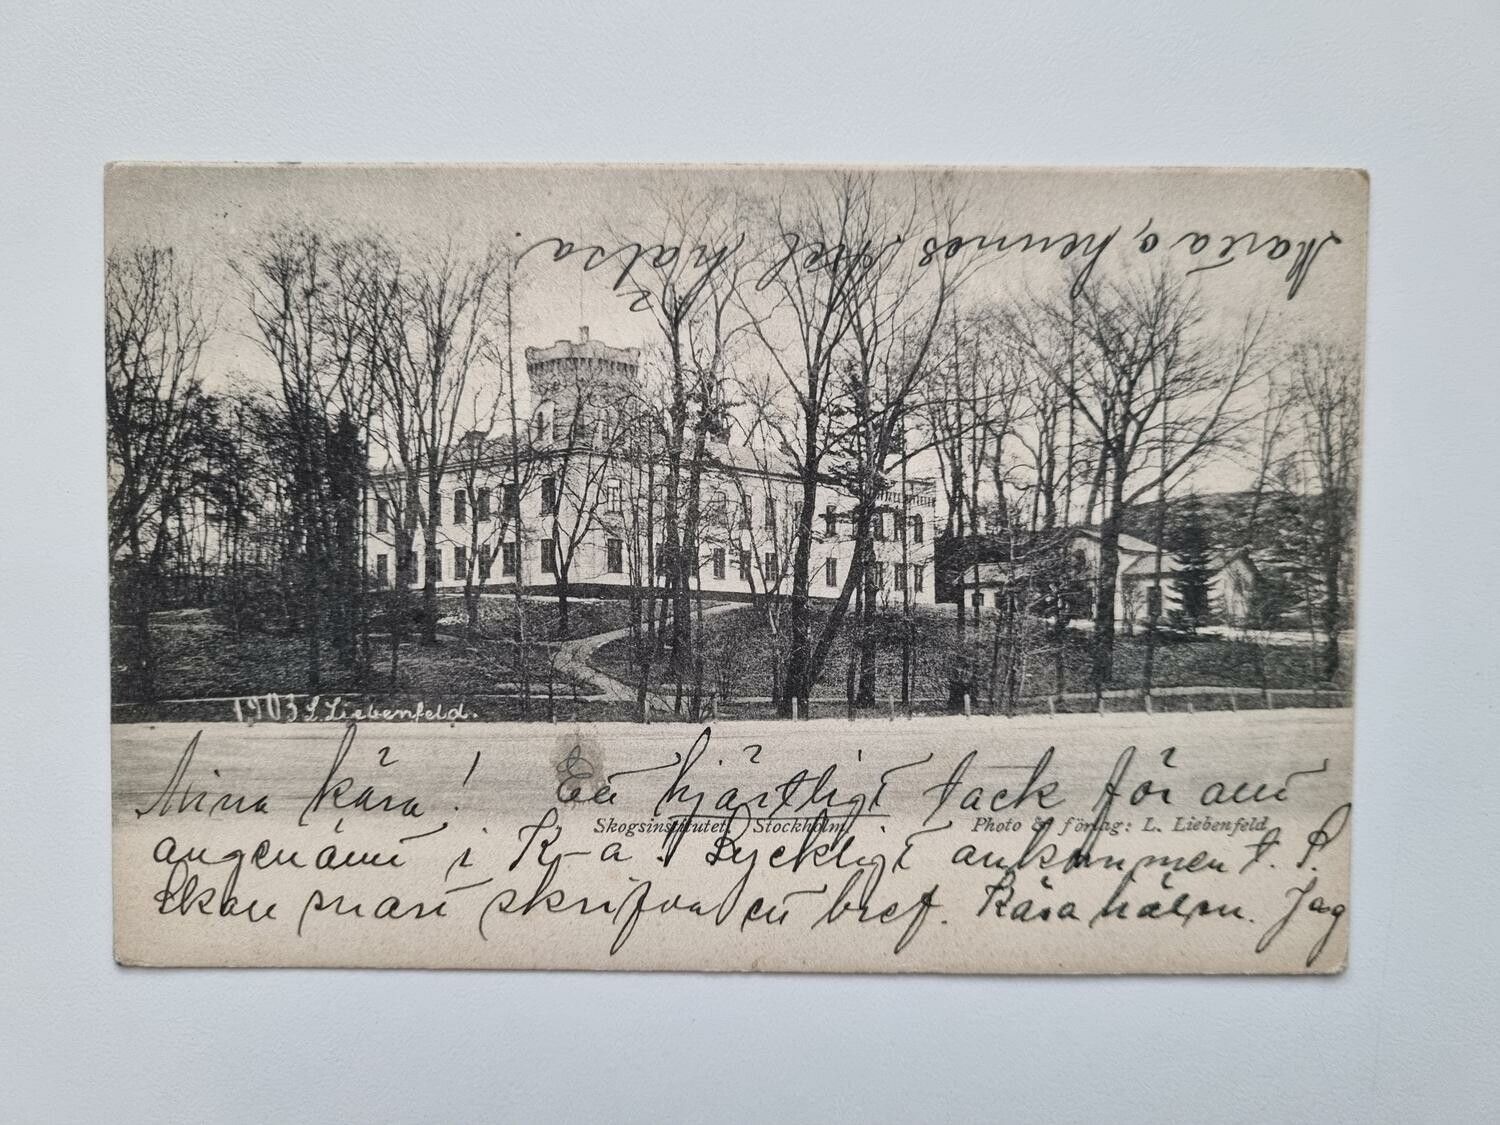 Maria o, hennes Axel hälsa
1903 L. Liebenfeld.
Mina kära! En hjärtligt tack för allt
Skogsinstitutet. Stockholm. Photo & förlag: L. Liebenfeld.
angenämt i K-a! Lyckligt ankommen t. S.
Skall snart skrifva ett bref. Kära hälsn. Jag